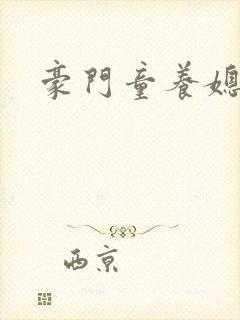 豪門童養媳
西京